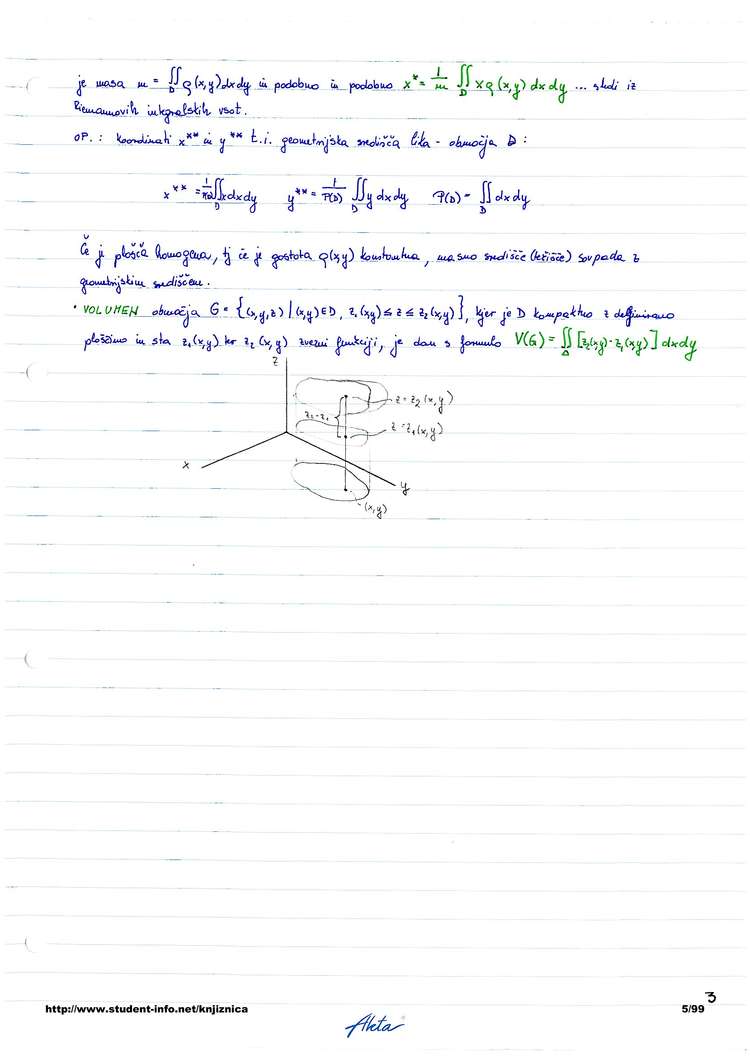 je masa m = ∬_D ρ(x,y) dx dy in podobno in podobno x* = 1/m ∬_D x ρ(x,y) dx dy ... sledi iz
Riemannovih integralskih vsot.
OP.: koordinati x** in y** t.i. geometrijska središča lika - območja D:
x** = 1/P(D) ∬_D x dx dy y** = 1/P(D) ∬_D y dx dy P(D) = ∬_D dx dy
Če je plošča homogena, tj če je gostota ρ(x,y) konstantna, masno središče (težišče) sovpada z
geometrijskim središčem.
• VOLUMEN območja G = {(x,y,z) | (x,y) ∈ D, z₁(x,y) ≤ z ≤ z₂(x,y)}, kjer je D kompaktno z definirano
ploščino in sta z₁(x,y) ter z₂(x,y) zvezni funkciji, je dan s formulo V(G) = ∬_D [z₂(x,y) - z₁(x,y)] dx dy
z
z = z₂(x,y)
z₂-z₁
z = z₁(x,y)
x
y
(x,y)
3
http://www.student-info.net/knjiznica 5/99
Akta